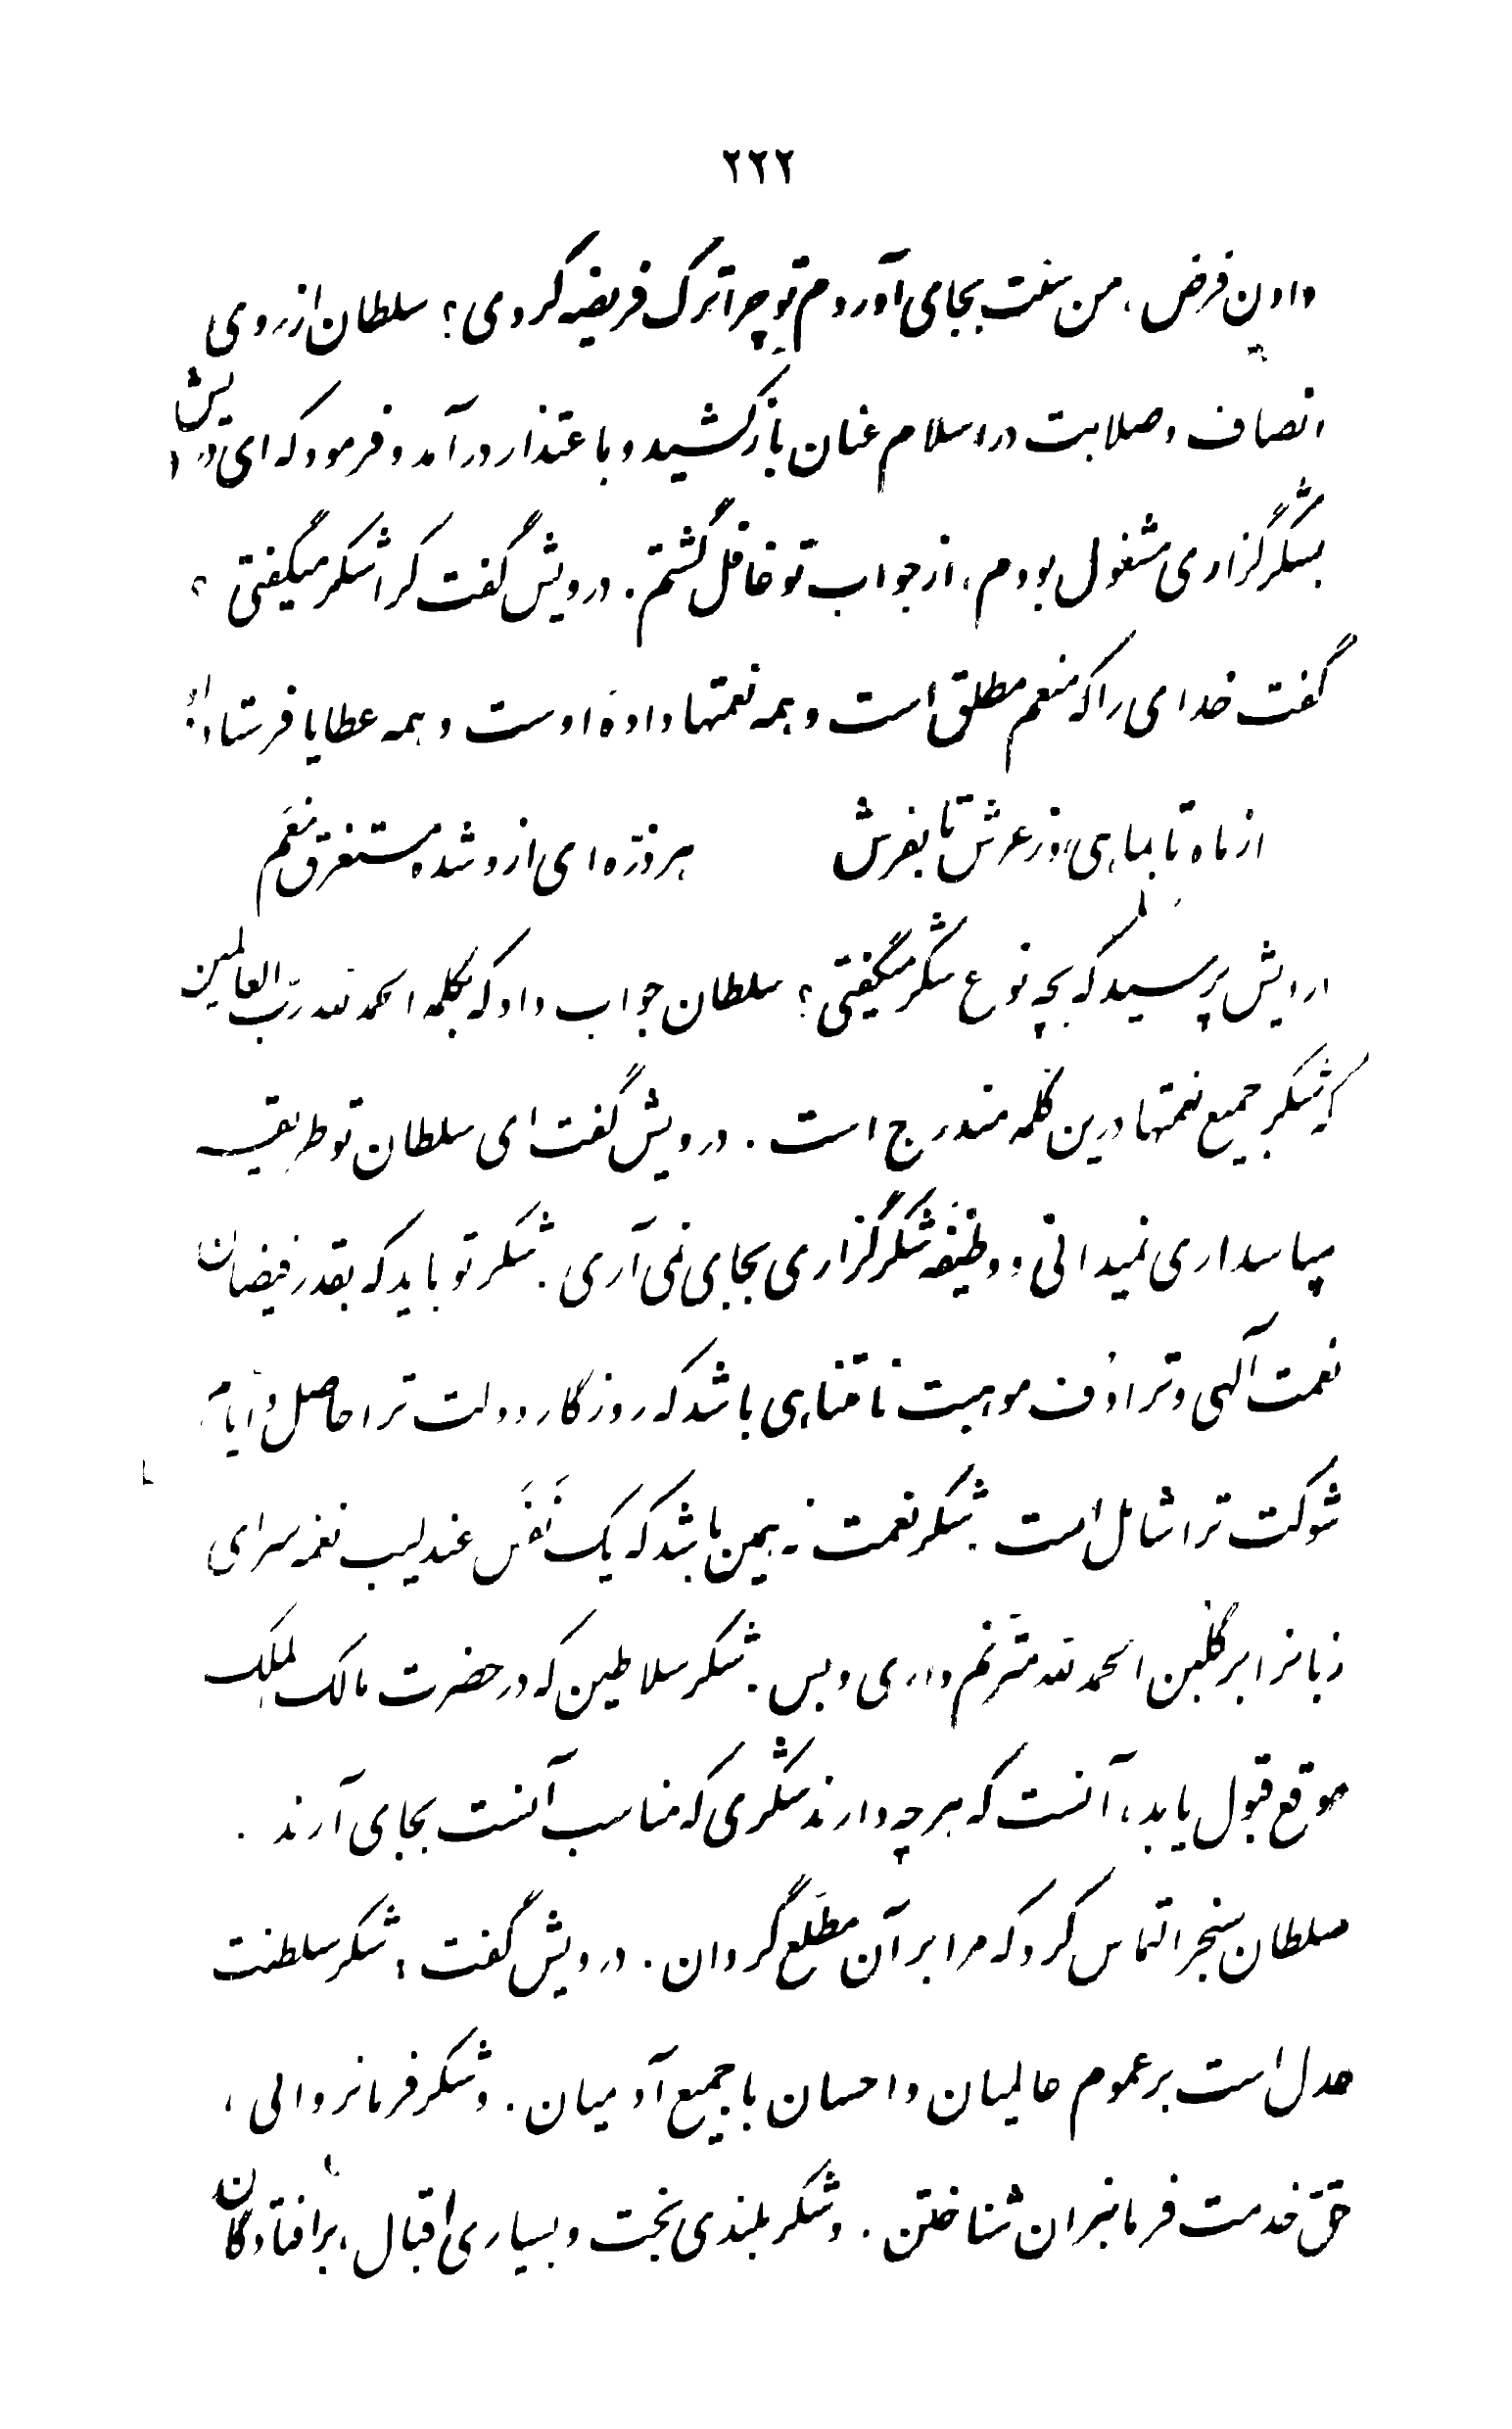 ۲۲۲
دادن فرض، من سنت بجای آوردم تو چرا ترک فریضه کردی؟ سلطان از روی
انصاف و صلابت در اسلام عنان باز کشید و باعتذار درآمد و فرمود که ای درویش
بشکرگزاری مشغول بودم، از جواب تو غافل گشتم. درویش گفت کرا شکر میگفتی؟
گفت خدای را که منعم مطلق است و همه نعمتها دادهٔ اوست و همه عطایا فرستادهٔ او
از ماه تا بماهی و ز عرش تا بفرش هر ذرّه‌ای ازو شده مستغرق نعم
درویش پرسید که بچه نوع شکر میگفتی؟ سلطان جواب داد که بکلمه الحمدلله ربّ العالمین
که شکر جمیع نعمتها درین کلمه مندرج است. درویش گفت ای سلطان تو طریقه
سپاسداری نمیدانی و وظیفه شکرگزاری بجای نمی‌آری. شکر تو باید که بقدر فیضان
نعمت آلهی و ترادف موهبت نامتناهی باشد که روزگار دولت ترا حاصل و ایام
شوکت ترا شامل است. شکر نعمت نه همین باشد که یک نَفَس عندلیب نغمه سرای
زبانرا بر گلبن الحمدلله مترنّم داری و بس. شکر سلاطین که در حضرت مالک الملک
موقع قبول یابد، آنست که هر چه دارند شکری که مناسب آنست بجای آرند.
سلطان سنجر التماس کرد که مرا بر آن مطّلع گردان. درویش گفت: شکر سلطنت
عدل است بر عموم عالمیان و احسان با جمیع آدمیان. و شکر فرمانروائی،
حق خدمت فرمانبران شناختن. و شکر بلندی بخت و بسیاری اقبال، بر افتادگان